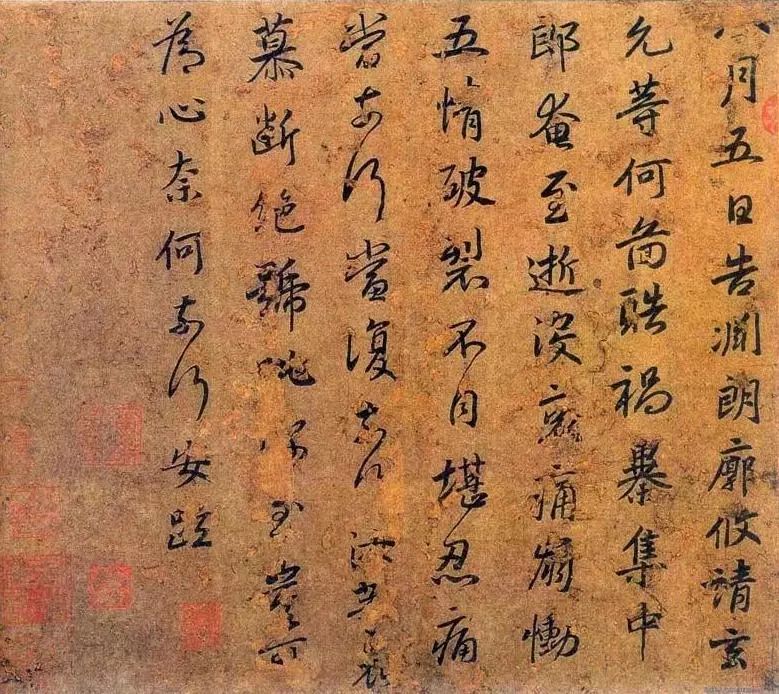 八月五日告淵朗廓攸靖玄
允等何圖酷禍暴集中
郎奄至逝没哀痛崩慟
五情破裂不自堪忍痛
當奈何當復奈何汝等哀
慕斷絶號咷深至豈可
為心奈何奈何安疏